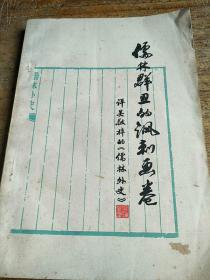 儒林群丑的讽刺画卷
评吴敬梓的《儒林外史》
儒林外史